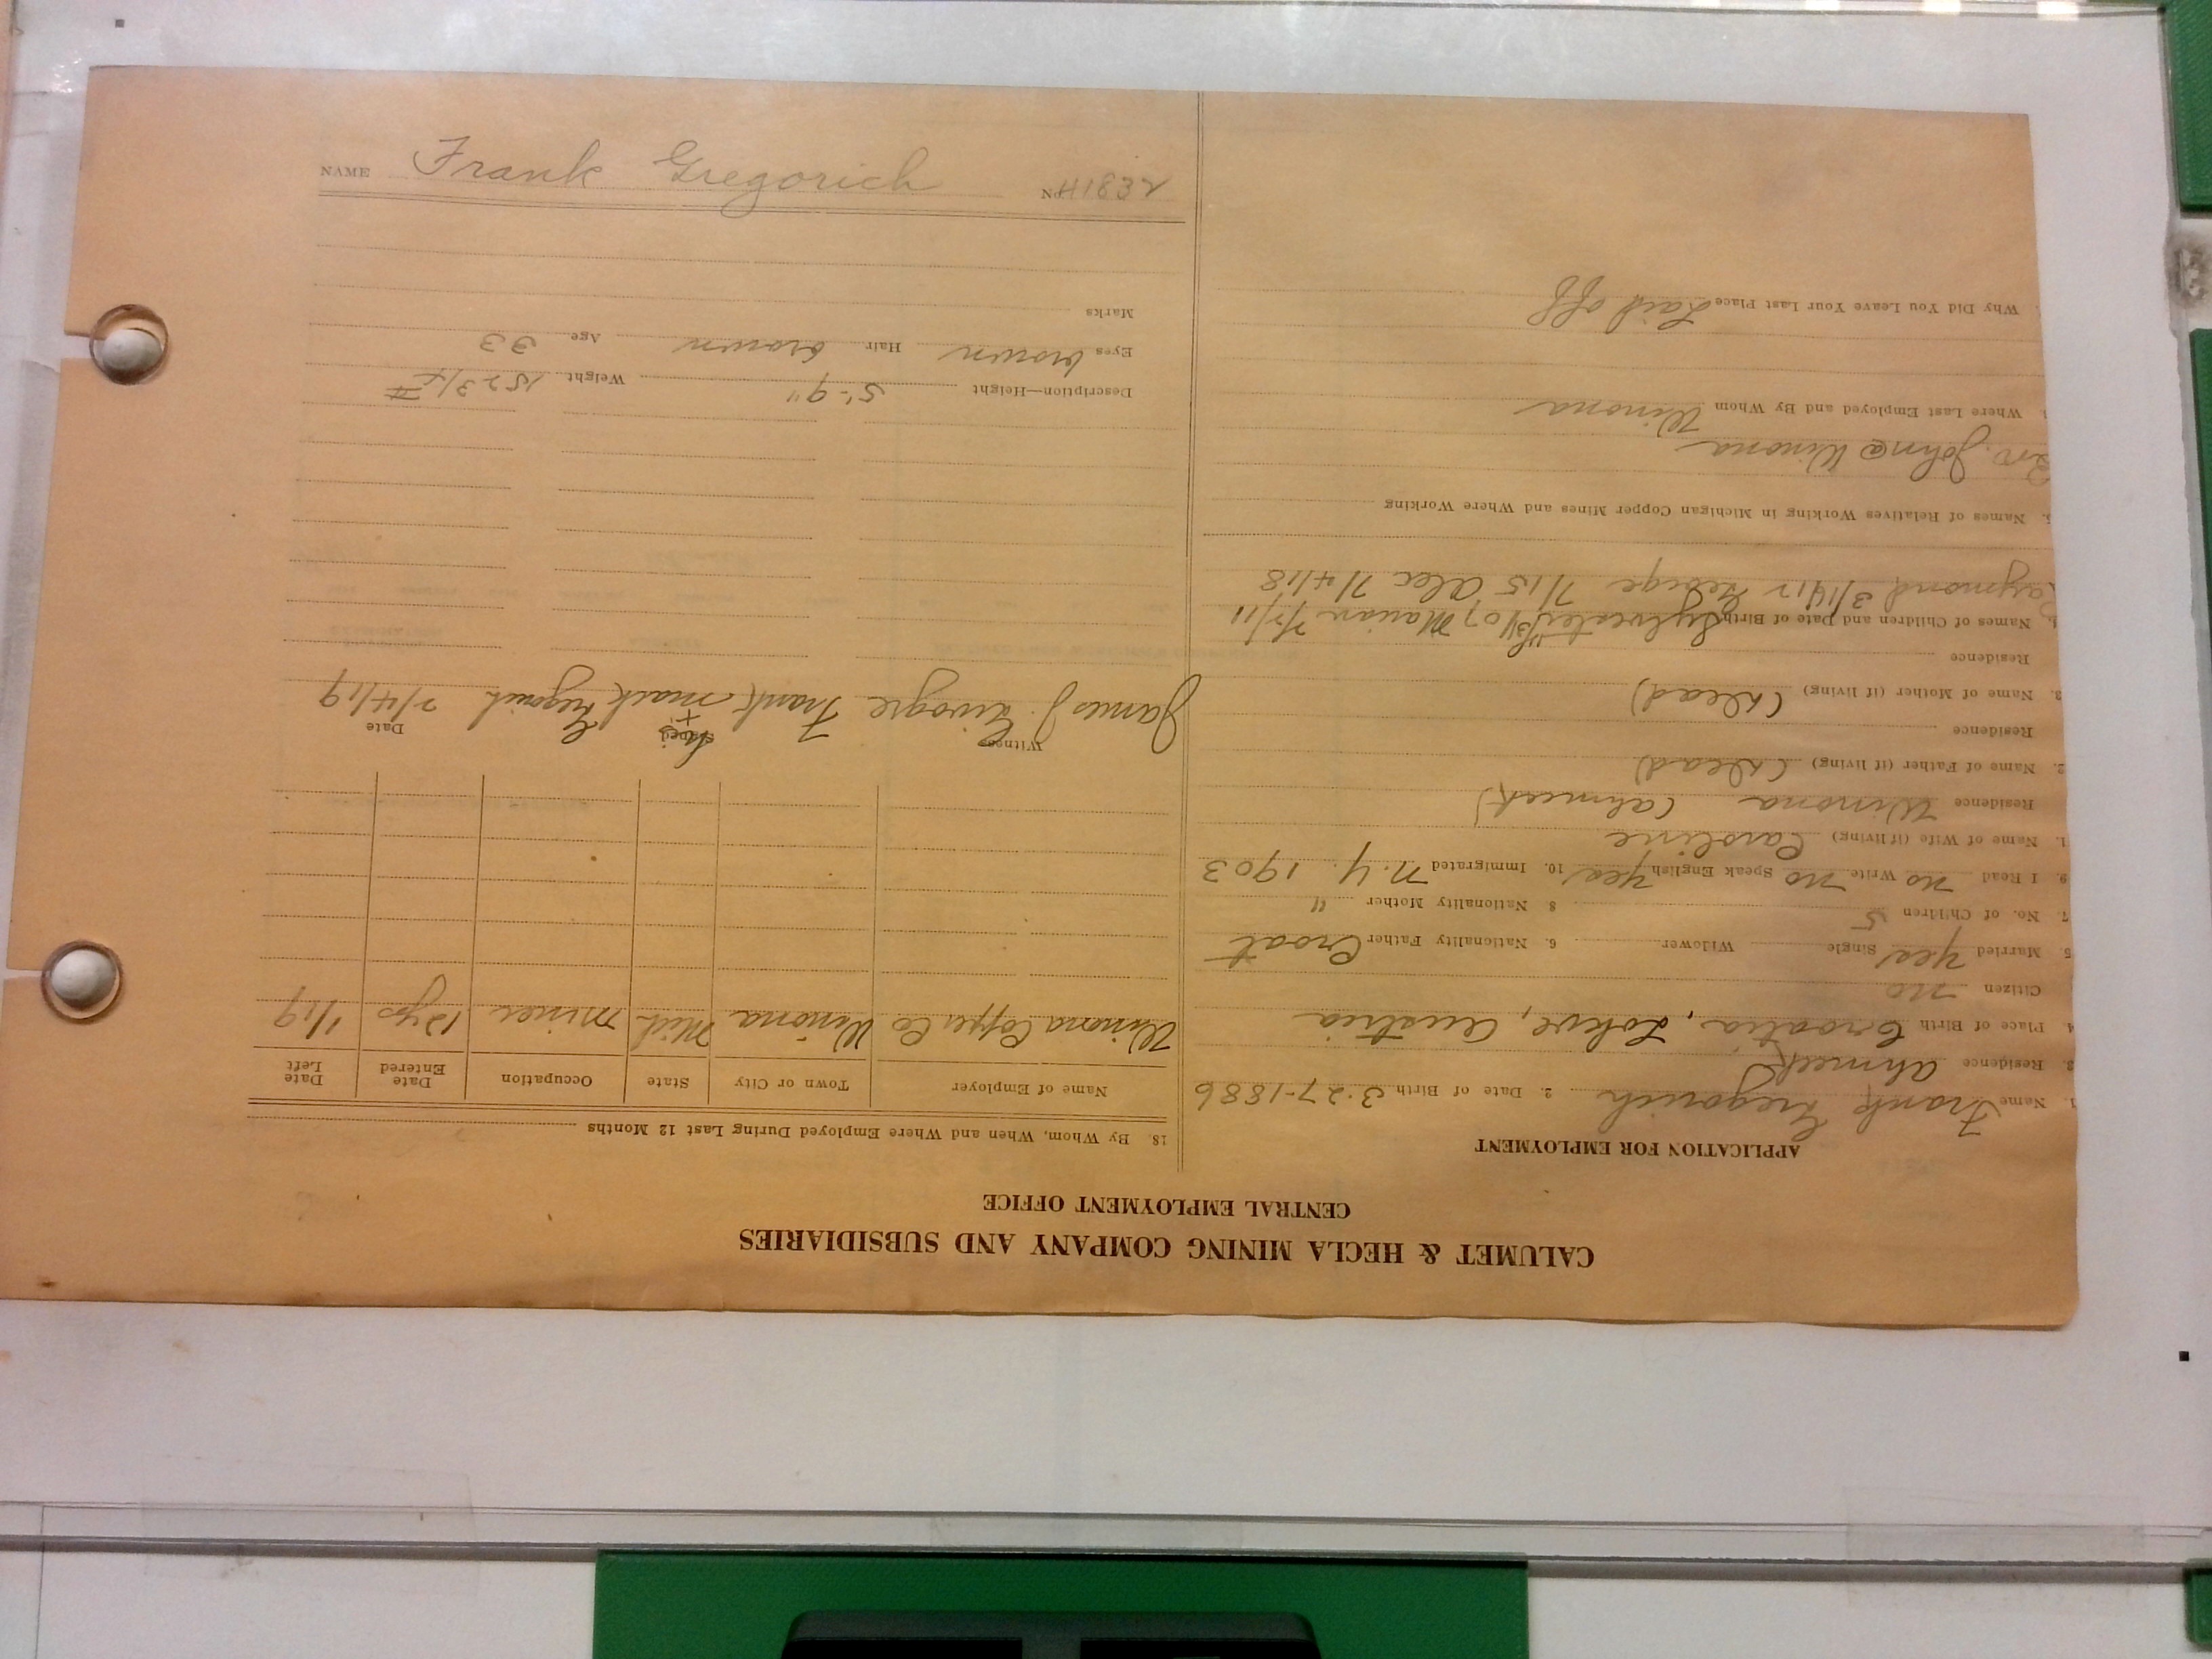 CALUMET & HECLA MINING COMPANY AND SUBSIDIARIES
CENTRAL EMPLOYMENT OFFICE
APPLICATION FOR EMPLOYMENT
1. Name Frank Gregorich 2. Date of Birth 3-27-1886
3. Residence Ahmeek
4. Place of Birth Croatia, Lokve, Austria
Citizen no
5. Married yes Single Widower 6. Nationality Father Croat
7. No. of Children 5 8 Nationality Mother "
9. I Read no Write no Speak English yes 10. Immigrated N.Y. 1903
1. Name of Wife (if living) Caroline
Residence Winona (Ahmeek)
2. Name of Father (if living) (Dead)
Residence
3. Name of Mother (if living) (Dead)
Residence
4. Names of Children and Date of Birth Sylvester 07 Marian 7/7/11
Raymond 3/14/12 George 7/15 Alec 7/4/18
5. Names of Relatives Working in Michigan Copper Mines and Where Working
Bro. John @ Winona
Where Last Employed and By Whom Winona
Why Did You Leave Your Last Place Laid off
18. By Whom, When and Where Employed During Last 12 Months
Name of Employer Town or City State Occupation Date Entered Date Left
Winona Copper Co Winona Mich miner 12yrs 1/19
Witness Signed Date
James J. Frank his x mark Gregorich 2/4/19
Description—Height 5'-9" Weight 152 3/4 #
Eyes brown Hair brown Age 33
Marks
NAME Frank Gregorich No. 41832